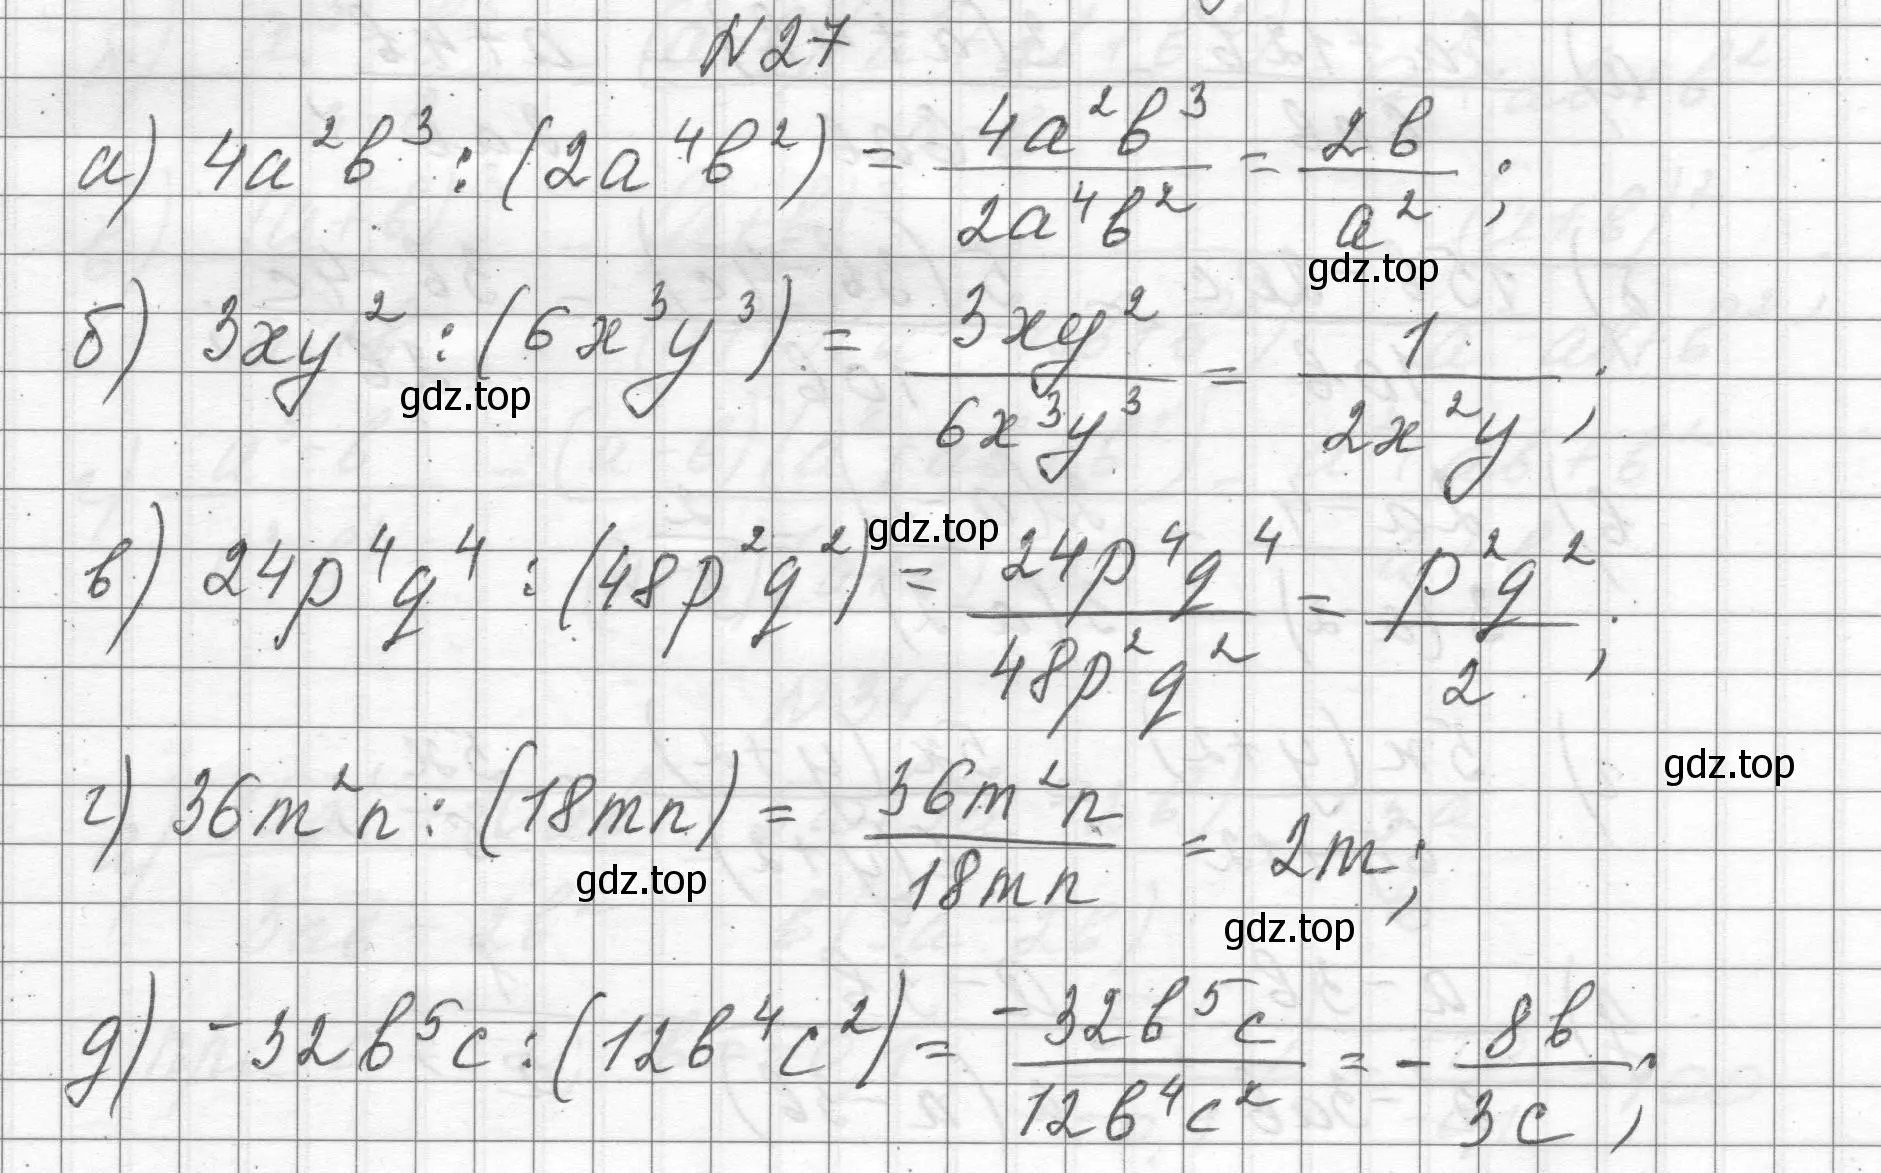 N27
а) 4a²b³ : (2a⁴b²) = 4a²b³/2a⁴b² = 2b/a² ;
gdz.top
б) 3xy² : (6x³y³) = 3xy²/6x³y³ = 1/2x²y ;
gdz.top
gdz.top
в) 24p⁴q⁴ : (48p²q²) = 24p⁴q⁴/48p²q² = p²q²/2 ;
gdz.top
г) 36m²n : (18mn) = 36m²n/18mn = 2m ;
gdz.top
gdz.top
д) -32b⁵c : (12b⁴c²) = -32b⁵c/12b⁴c² = - 8b/3c ;